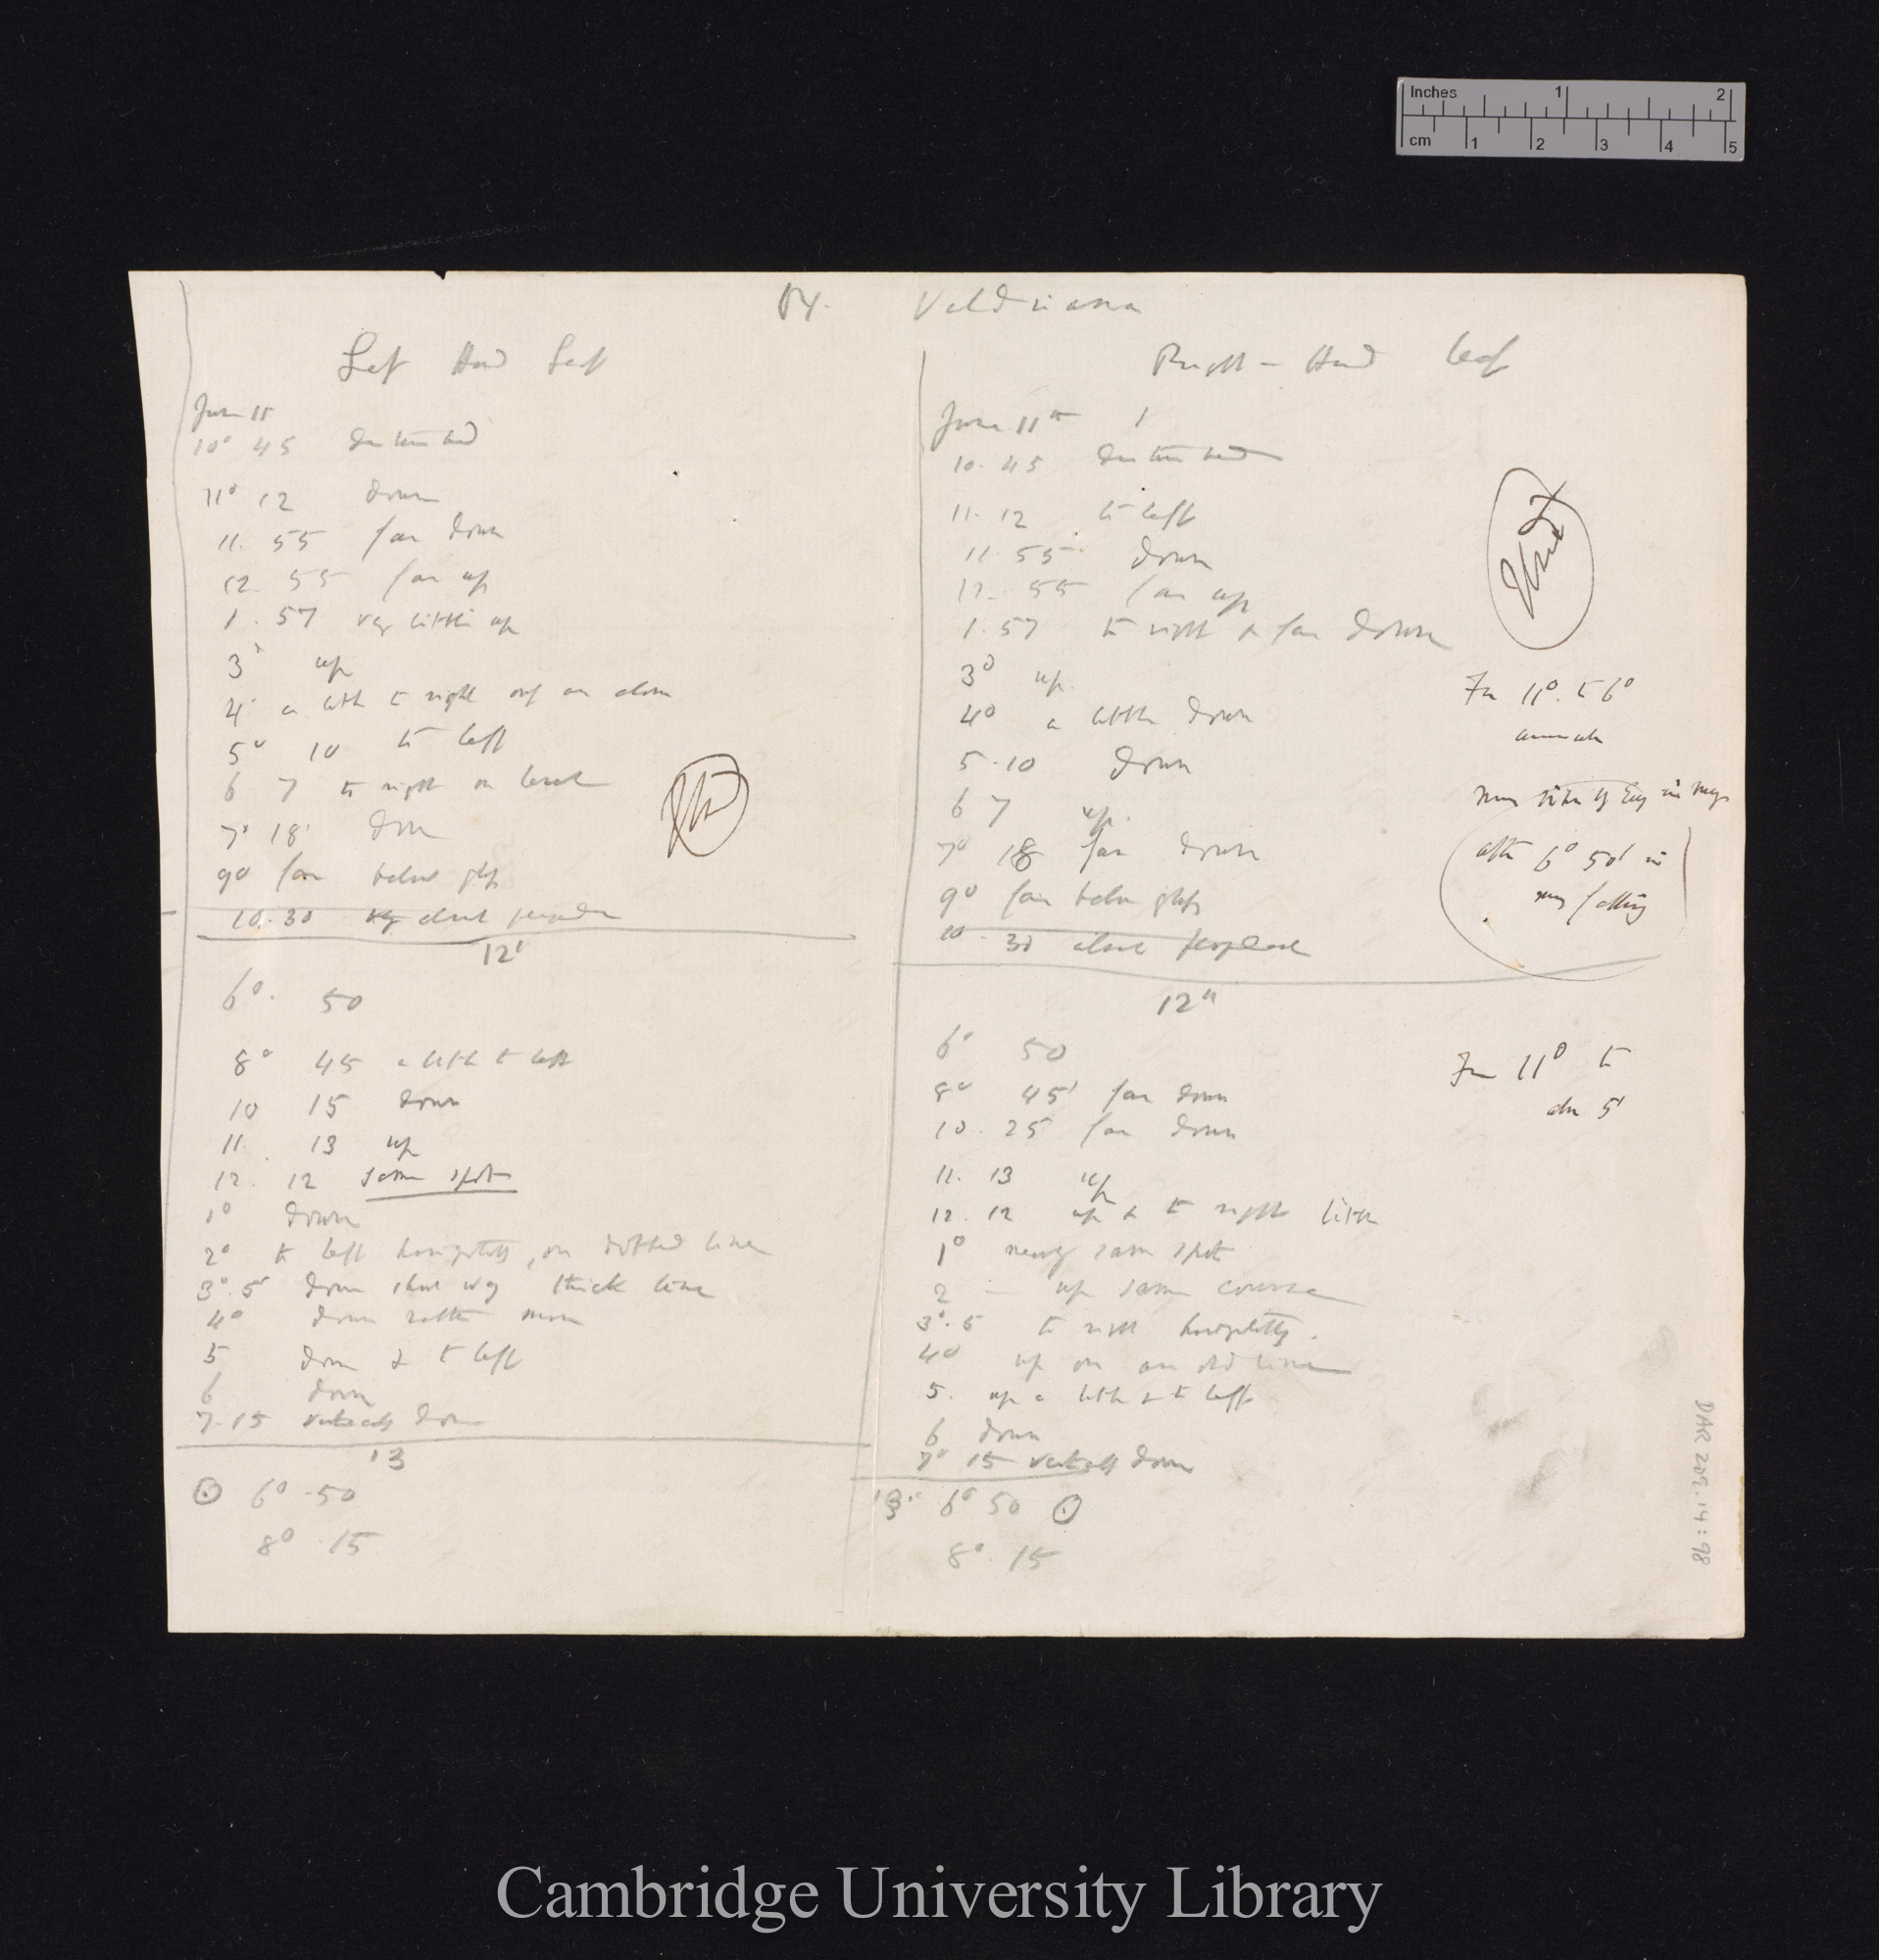 Inches 1 2
cm 1 2 3 4 5
Left Hand Leaf
June 11
10° 45
11° 12 down
11. 55 far down
12 55 far up
1. 57 very little up
3° up
4° a little to right
5° 10 to left
6 7 to right on level
7° 18' down
9° far below glass
10. 30
12'
6°. 50
8° 45 a little to left
10 15 down
11. 13 up
12. 12 same spot
1° down
2° to left horizontally, on dotted line
3°. 5' down short way thick line
4° down rather more
5 down & to left
6 down
7. 15 vertically down
13
6° . 50
8° . 15
Right-Hand Leaf
June 11th
10. 45
11. 12 to left
11. 55 down
12. 55 far up
1. 57 to right & far down
3° up
4° a little down
5. 10 down
6 7 up.
7° 18 far down
9° far below glass
10. 30
12th
6° 50
8° 45' far down
10. 25 far down
11. 13 up
12. 12 up & to right little
1° nearly same spot
2 – up same course
3°. 5 to right horizontally.
4° up on an old line
5. up a little & to left
6 down
7° 15 vertically down
13. 6° 50
8°. 15
Used
Fr 11°. to 6°
after 6° 50' in
Fr 11° to
5'
DAR 209.14:98
Cambridge University Library